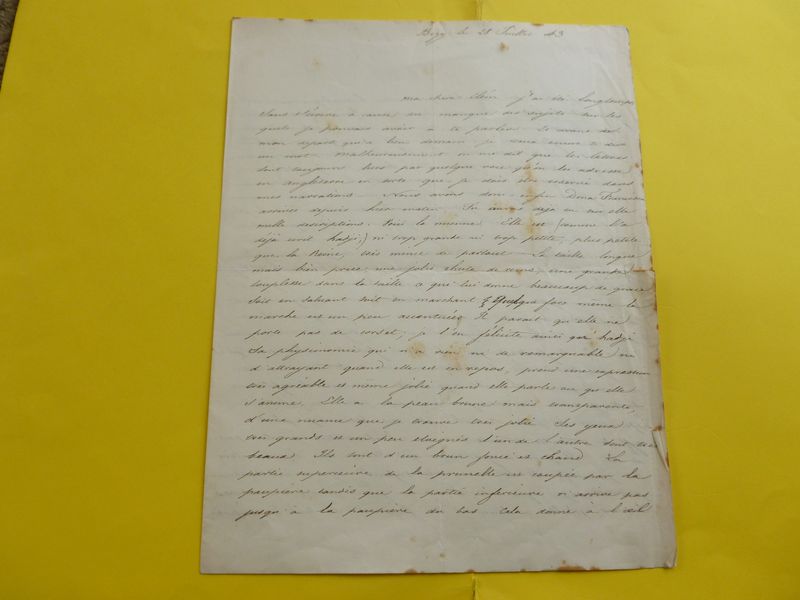 Bizy le 28 Juillet 43
ma chère Clém j'ai été longtemps
sans t'écrire à cause du manque des sujets sur les
quels je pouvais avoir à te parler. Et avant
mon départ qui a lieu demain je veux encore te dire
un mot. Malheureusement on me dit que les lettres
sont toujours lues par quelque voie qu'on les adresse
en angleterre en sorte que je dois être réservé dans
mes narrations. Nous avons donc enfin Dona Francisca
arrivée depuis hier matin. Tu auras déjà eu sur elle
mille descriptions. Voici la mienne. Elle est (comme l'a
déjà écrit hadji) ni trop grande ni trop petite, plus petite
que la Reine, très mince de partout. La taille longue
mais bien prise, une jolie chute de reins, une grande
souplesse dans la taille ce qui lui donne beaucoup de grace
soit en saluant soit en marchant quelques fois même la
marche est un peu accentuée. Il parait qu'elle ne
porte pas de corset, je l'en félicite ainsi que hadji
Sa physionomie qui n'a rien de remarquable ni
d'attrayant quand elle est en repos, prend une expression
très agréable et même jolie quand elle parle ou qu'elle
s'anime. Elle a la peau brune mais transparente,
d'une nuance que je trouve très jolie. Ses yeux
très grands et un peu éloignés l'un de l'autre sont très
beaux. Ils sont d'un brun foncé et chaud. La
partie supérieure de la prunelle est coupée par la
paupière tandis que la partie inférieure n'arrive pas
jusqu'à la paupière du bas. Cela donne à l'œil